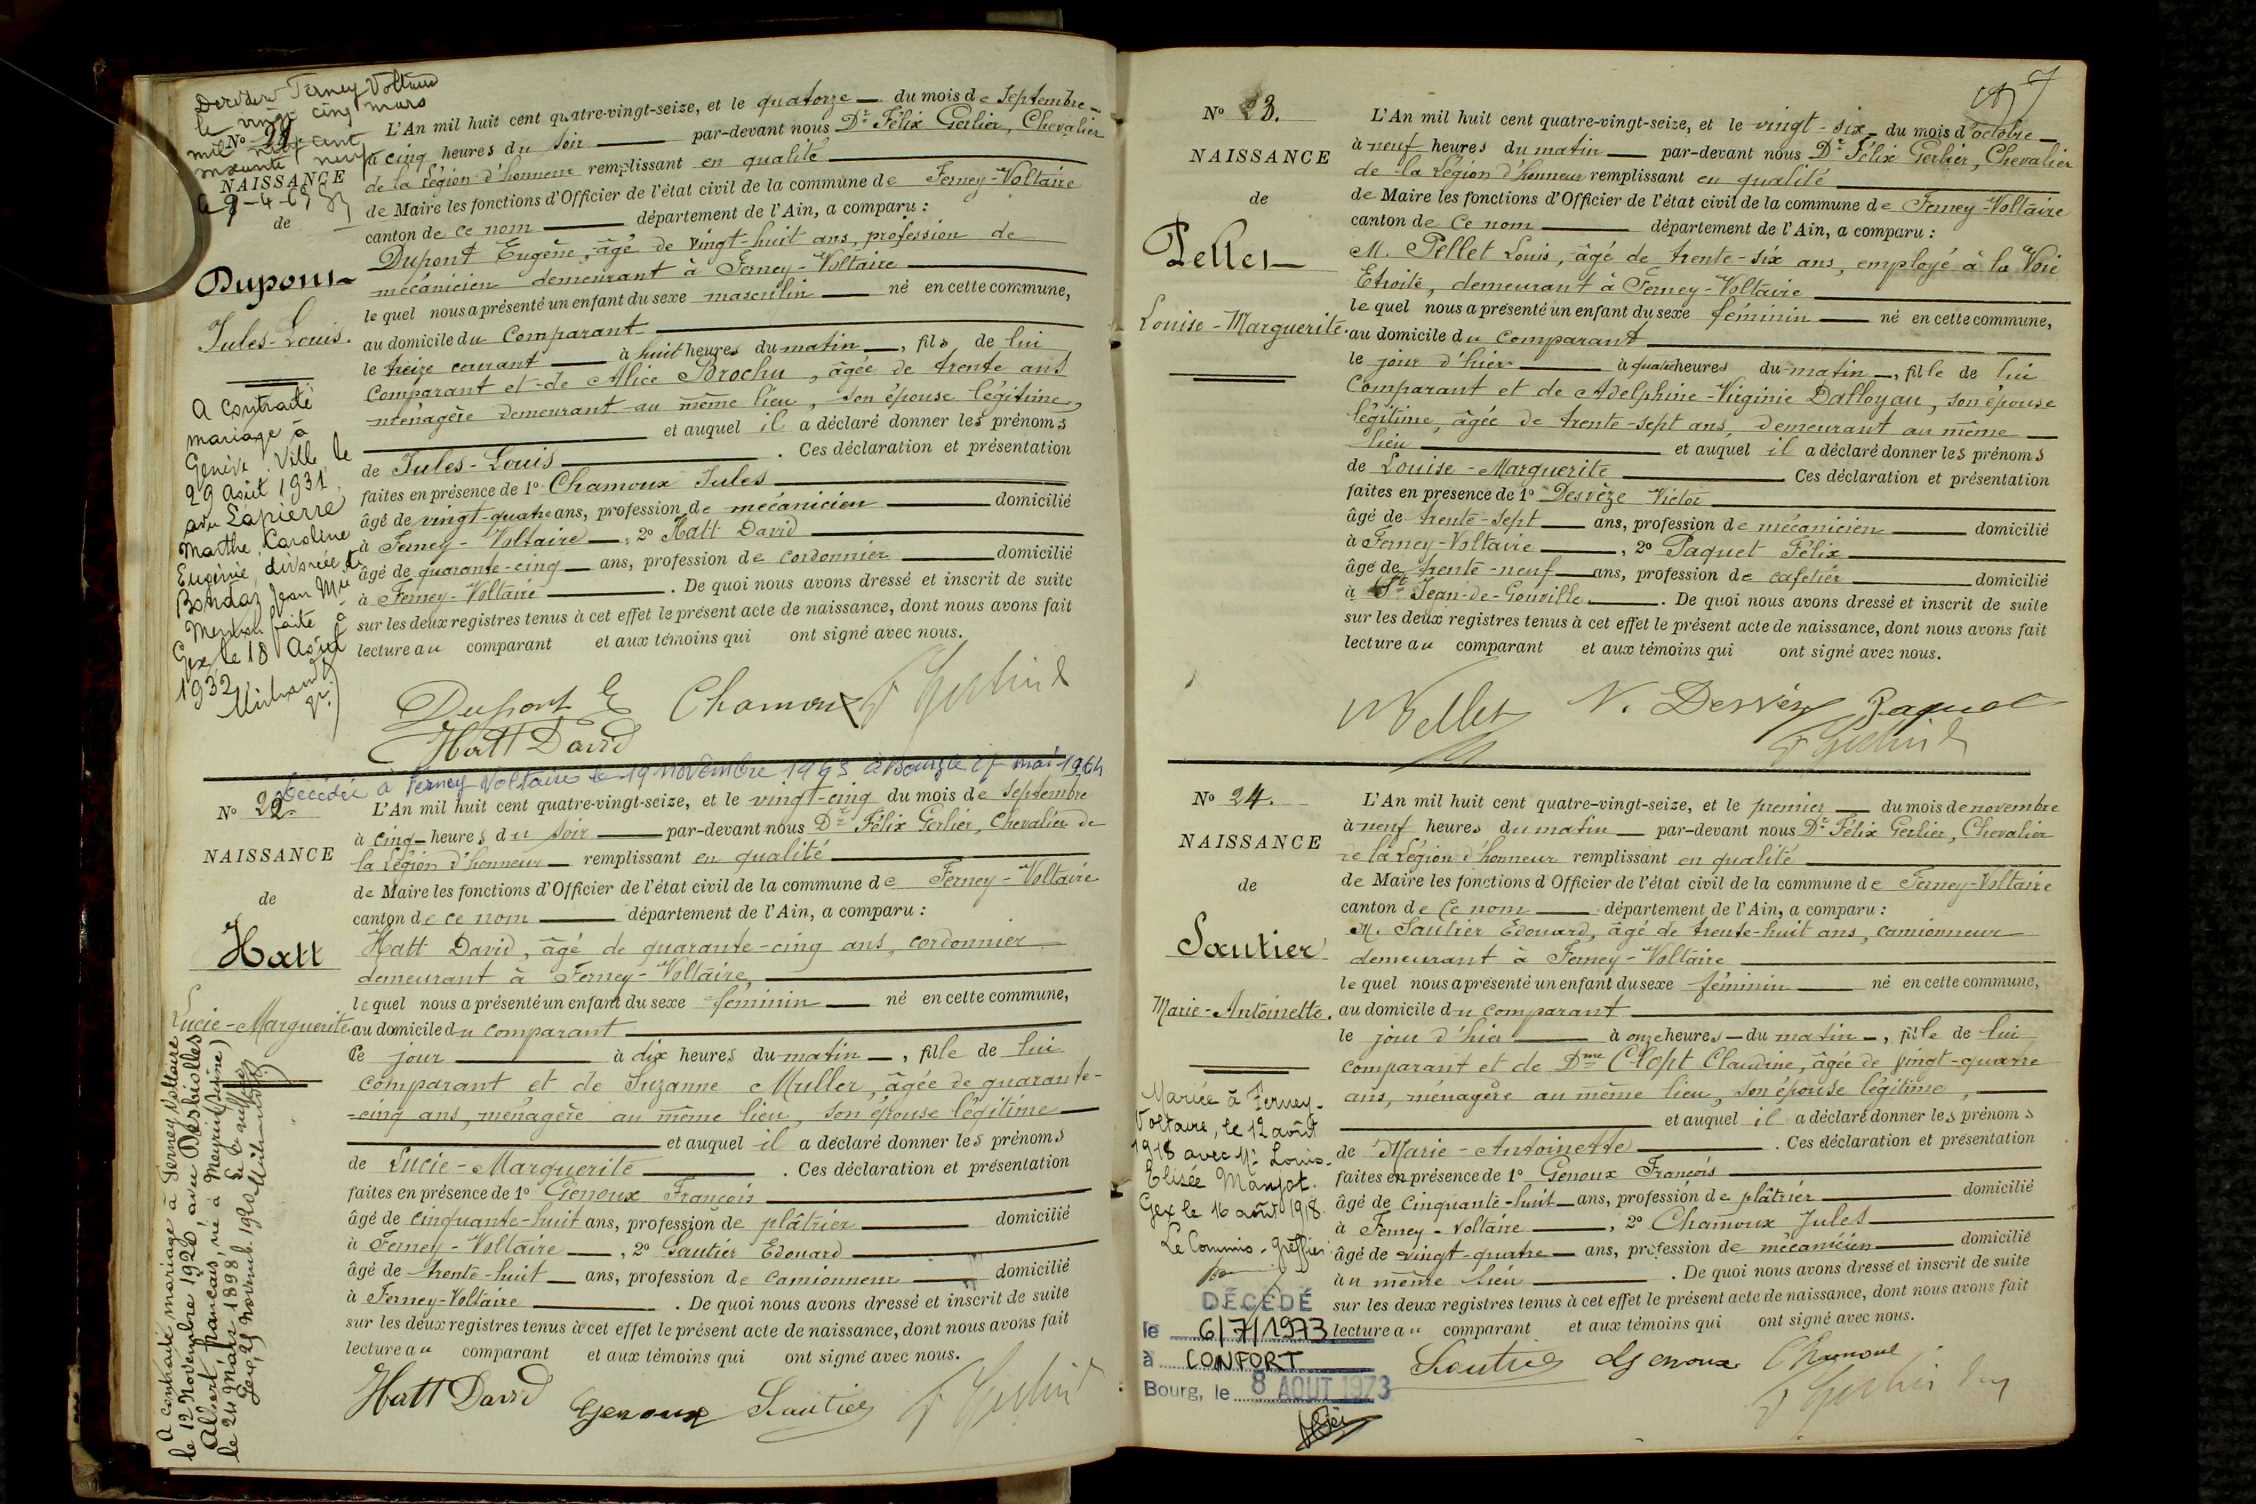 Décédé à Ferney Voltaire
le vingt cinq mars
mil neuf cent
soixante neuf
le 9-4-69
No 21.
NAISSANCE
de
Dupont
Jules-Louis.
A contracté
mariage à
Genève. Ville le
29 Août 1931
avec Lapierre
Marthe, Caroline
Eugénie, divorcée de
Bondaz Jean Mie
Mention faite à
Gex, le 18 Août
1932
L'An mil huit cent quatre-vingt-seize, et le quatorze du mois de Septembre
à cinq heures du soir par-devant nous Dr Félix Gerlier, Chevalier
de la Légion d'honneur remplissant en qualité
de Maire les fonctions d'Officier de l'état civil de la commune de Ferney-Voltaire
canton de ce nom département de l'Ain, a comparu :
Dupont Eugène, âgé de vingt-huit ans, profession de
mécanicien demeurant à Ferney-Voltaire
le quel nous a présenté un enfant du sexe masculin né en cette commune,
au domicile du comparant
le treize courant à huit heures du matin, fils de lui
comparant et de Alice Brochu, âgée de trente ans
ménagère demeurant au même lieu, son épouse légitime,
et auquel il a déclaré donner les prénoms
de Jules-Louis. Ces déclaration et présentation
faites en présence de 1º Chamoux Jules
âgé de vingt-quatre ans, profession de mécanicien domicilié
à Ferney-Voltaire, 2º Hatt David
âgé de quarante-cinq ans, profession de cordonnier domicilié
à Ferney-Voltaire. De quoi nous avons dressé et inscrit de suite
sur les deux registres tenus à cet effet le présent acte de naissance, dont nous avons fait
lecture au comparant et aux témoins qui ont signé avec nous.
Dupont E Chamoux F Gerlier
Hatt David
Décédée à Ferney Voltaire le 19 novembre 1963 à Bourg le 27 mai 1964
No 22.
NAISSANCE
de
Hatt
Lucie-Marguerite
A contracté mariage à Ferney Voltaire
le 12 Novembre 1920, avec Desbiolles
Albert, français, né à Meyrin (Suisse)
le 24 Mars 1898. Le Greffier
Gex, 25 Novemb. 1920
L'An mil huit cent quatre-vingt-seize, et le vingt-cinq du mois de Septembre
à cinq heures du soir par-devant nous Dr Félix Gerlier, Chevalier de
la Légion d'honneur remplissant en qualité
de Maire les fonctions d'Officier de l'état civil de la commune de Ferney-Voltaire
canton de ce nom département de l'Ain, a comparu :
Hatt David, âgé de quarante-cinq ans, cordonnier
demeurant à Ferney-Voltaire,
le quel nous a présenté un enfant du sexe féminin né en cette commune,
au domicile du comparant
ce jour à dix heures du matin, fille de lui
comparant et de Suzanne Muller, âgée de quarante-
-cinq ans, ménagère au même lieu, son épouse légitime
et auquel il a déclaré donner les prénoms
de Lucie-Marguerite. Ces déclaration et présentation
faites en présence de 1º Genoux François
âgé de cinquante-huit ans, profession de plâtrier domicilié
à Ferney-Voltaire, 2º Sautier Edouard
âgé de trente-huit ans, profession de camionneur domicilié
à Ferney-Voltaire. De quoi nous avons dressé et inscrit de suite
sur les deux registres tenus à cet effet le présent acte de naissance, dont nous avons fait
lecture au comparant et aux témoins qui ont signé avec nous.
Hatt David Genoux Sautier F Gerlier
7
No 23.
NAISSANCE
de
Pellet
Louise-Marguerite.
L'An mil huit cent quatre-vingt-seize, et le vingt-six du mois d'octobre
à neuf heures du matin par-devant nous Dr Félix Gerlier, Chevalier
de la Légion d'honneur remplissant en qualité
de Maire les fonctions d'Officier de l'état civil de la commune de Ferney-Voltaire
canton de ce nom département de l'Ain, a comparu :
M. Pellet Louis, âgé de trente-six ans, employé à la Voie
Etroite, demeurant à Ferney-Voltaire
le quel nous a présenté un enfant du sexe féminin né en cette commune,
au domicile du comparant
le jour d'hier à quatre heures du matin, fille de lui
comparant et de Adelphine-Virginie Dalloyau, son épouse
légitime, âgée de trente-sept ans, demeurant au même
lieu et auquel il a déclaré donner les prénoms
de Louise-Marguerite Ces déclaration et présentation
faites en présence de 1º Desvèze Victor
âgé de trente-sept ans, profession de mécanicien domicilié
à Ferney-Voltaire, 2º Paquet Félix
âgé de trente-neuf ans, profession de cafetier domicilié
à St Jean-de-Gonville. De quoi nous avons dressé et inscrit de suite
sur les deux registres tenus à cet effet le présent acte de naissance, dont nous avons fait
lecture au comparant et aux témoins qui ont signé avec nous.
Pellet V. Desvèz Paquet
F Gerlier
No 24.
NAISSANCE
de
Sautier
Marie-Antoinette.
Mariée à Ferney-
Voltaire, le 12 août
1918 avec Mr Louis-
Elisée Manjot.
Gex le 16 août 1918.
Le Commis-Greffier
DÉCÉDÉ
le 6/7/1973
à CONFORT
Bourg, le 8 AOUT 1973
L'An mil huit cent quatre-vingt-seize, et le premier du mois de novembre
à neuf heures du matin par-devant nous Dr Félix Gerlier, Chevalier
de la Légion d'honneur remplissant en qualité
de Maire les fonctions d'Officier de l'état civil de la commune de Ferney-Voltaire
canton de ce nom département de l'Ain, a comparu :
M. Sautier Edouard, âgé de trente-huit ans, camionneur
demeurant à Ferney-Voltaire
le quel nous a présenté un enfant du sexe féminin né en cette commune,
au domicile du comparant
le jour d'hier à onze heures du matin, fille de lui
comparant et de Dme Clopt Claudine, âgée de vingt-quatre
ans, ménagère au même lieu, son épouse légitime,
et auquel il a déclaré donner les prénoms
de Marie-Antoinette. Ces déclaration et présentation
faites en présence de 1º Genoux François
âgé de cinquante-huit ans, profession de plâtrier domicilié
à Ferney-Voltaire, 2º Chamoux Jules
âgé de vingt-quatre ans, profession de mécanicien domicilié
au même lieu. De quoi nous avons dressé et inscrit de suite
sur les deux registres tenus à cet effet le présent acte de naissance, dont nous avons fait
lecture au comparant et aux témoins qui ont signé avec nous.
Sautier Genoux Chamoux
F Gerlier